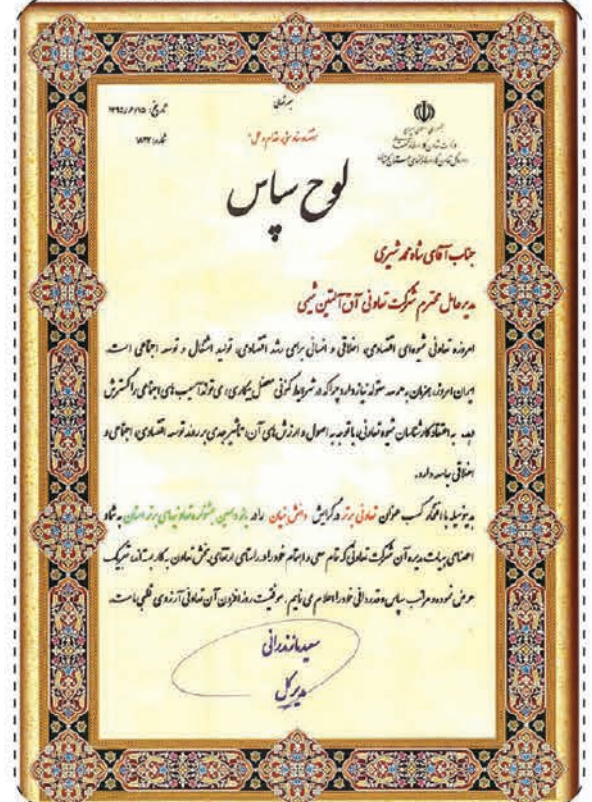 بسمه تعالی
تاریخ: ۱۳۹۵/۶/۱۵
شماره: ۱۸۳۲
اقتصاد مقاومتی، اقدام و عمل
جمهوری اسلامی ایران
وزارت تعاون، کار و رفاه اجتماعی
لوح سپاس
جناب آقای شاه محمد شیری
مدیرعامل محترم شرکت تعاونی آتی شیمی
امروزه تعاونی شیوه‌ای اقتصادی، اخلاقی و انسانی برای رشد اقتصادی، تولید اشتغال و توسعه اجتماعی است.
ایران امروز، همزمان به هر سه مقوله نیاز دارد چرا که در شرایط کنونی معضل بیکاری، می‌تواند آسیب‌های اجتماعی را گسترش
دهد. به اعتقاد کارشناسان شیوه تعاونی، با توجه به اصول و ارزش‌های آن، تأثیر جدی بر روند توسعه اقتصادی، اجتماعی و
اخلاقی جامعه دارد.
بدینوسیله با افتخار کسب عنوان تعاونی برتر در گرایش دانش بنیان را در یازدهمین جشنواره تعاونیهای برتر استان به شما و
اعضای هیات مدیره آن شرکت تعاونی که تمام سعی و اهتمام خود را در راستای ارتقای بخش تعاون به کار بستند، تبریک
عرض نموده و مراتب سپاس و قدردانی خود را اعلام می نمایم. موفقیت روزافزون آن تعاونی آرزوی قلبی ماست.
سعید مازندرانی
مدیرکل